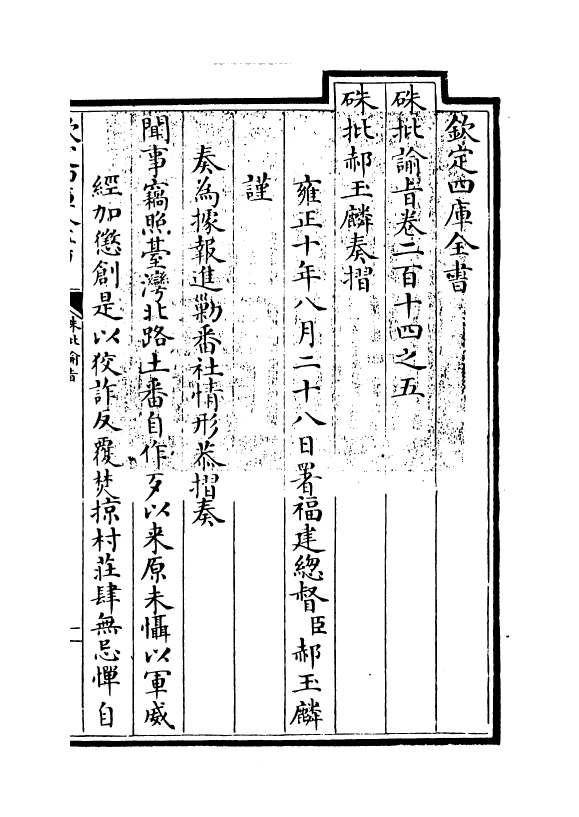 欽定四庫全書
硃批諭旨卷二百十四之五
硃批郝玉麟奏摺
雍正十年八月二十八日署福建總督臣郝玉麟
謹
奏為據報進勦番社情形恭摺奏
聞事竊照臺灣北路土番自作歹以来原未懾以軍威
經加懲創是以狡詐反覆焚掠村莊肆無忌憚自
硃批諭旨
一